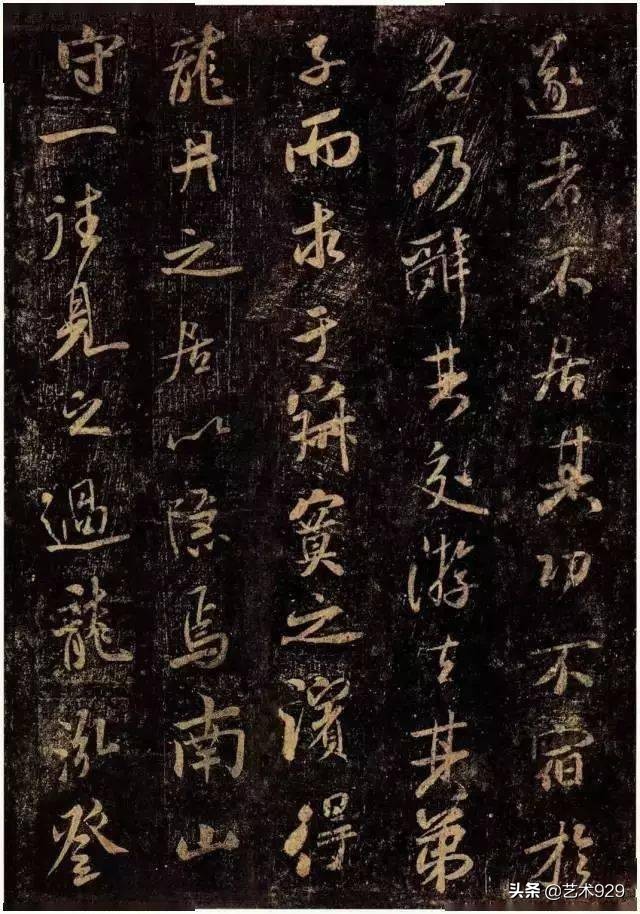 遂者不居其功不宿於
名乃辭其交游去其弟
子而求于寂寞之濱得
龍井之居以隱焉南山
守一往見之過龍泓登
头条 @艺术929